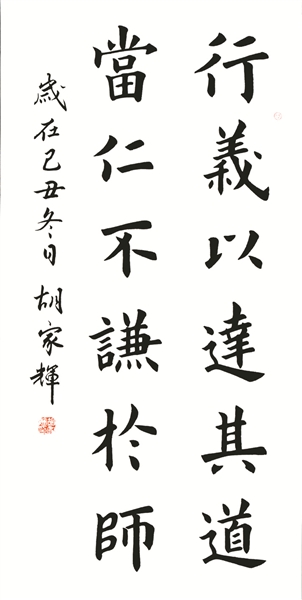 行義以達其道
當仁不謙於師
歲在己丑冬日 胡家輝